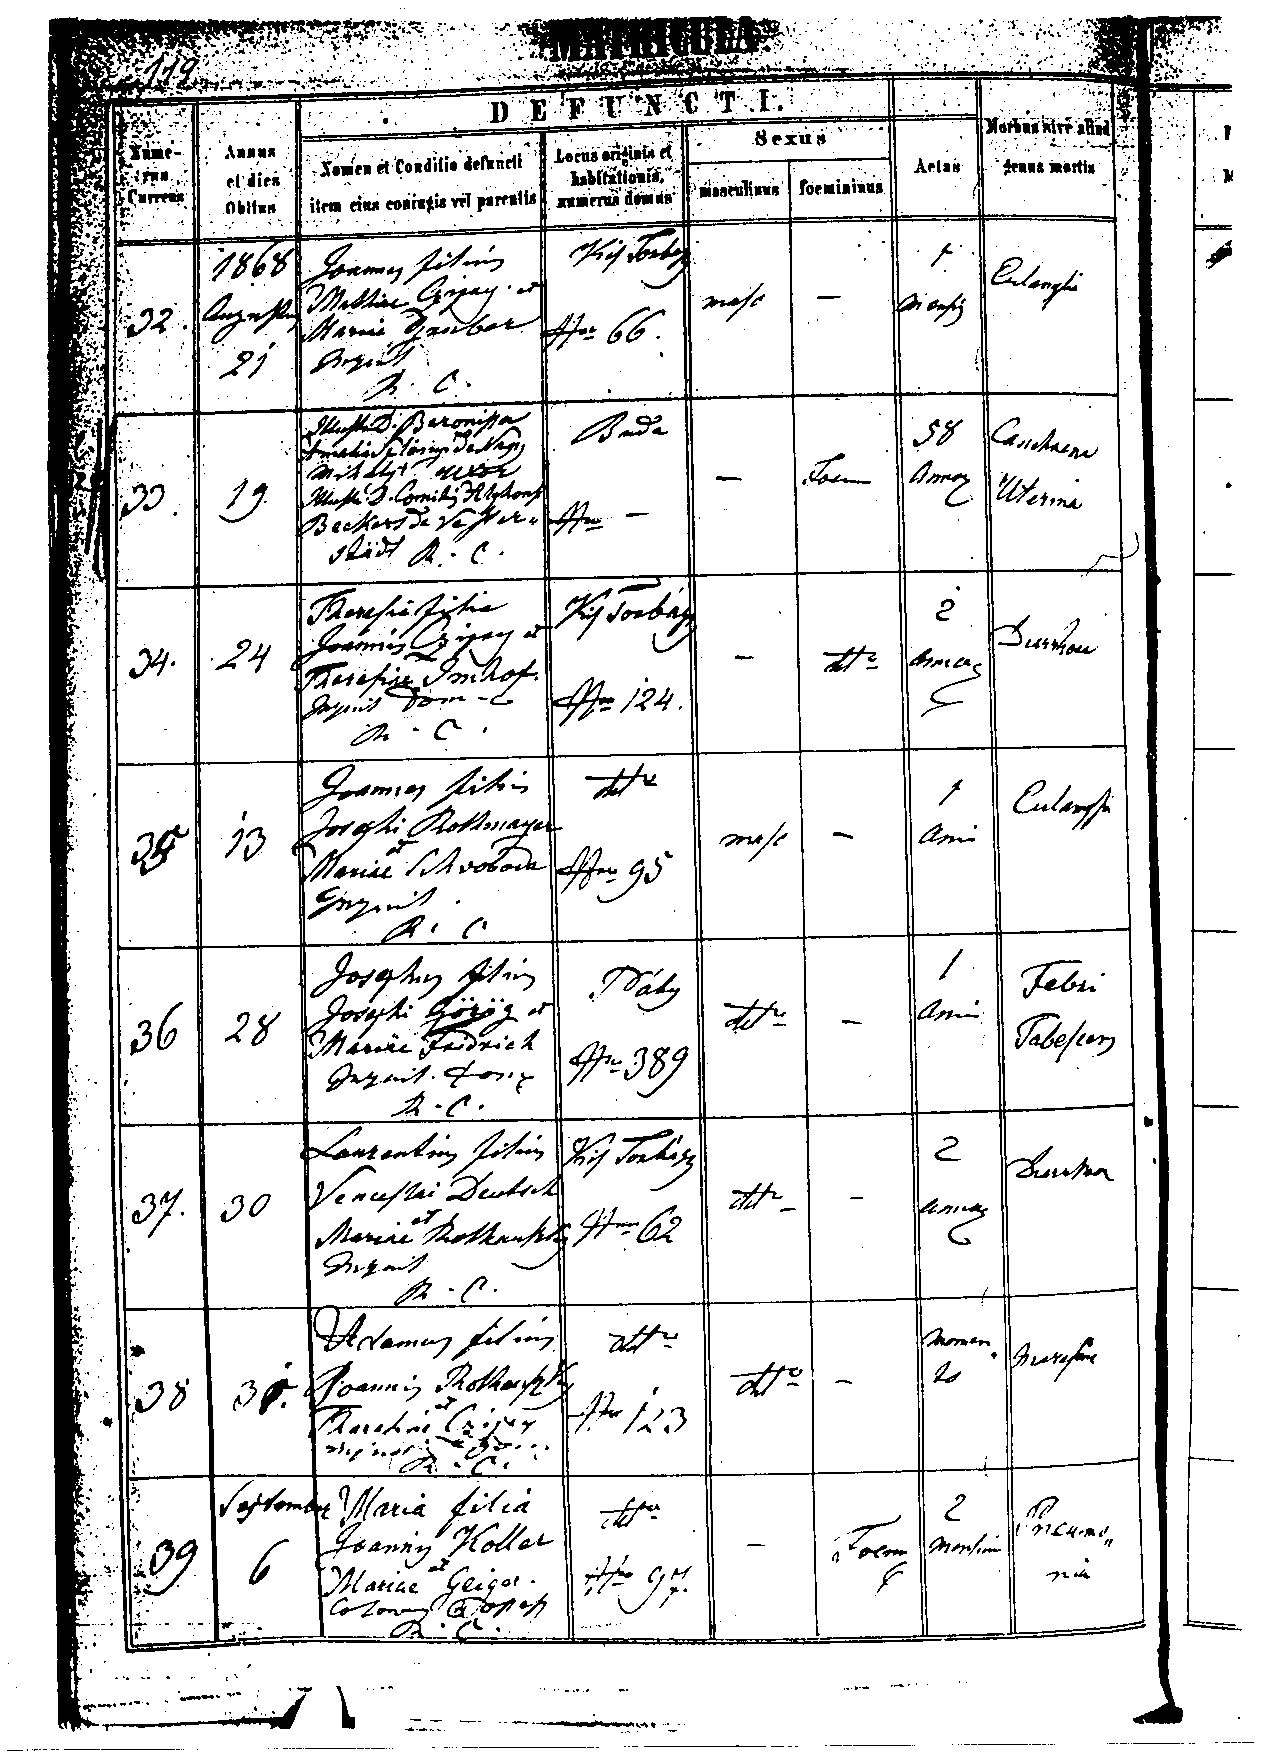 MATRICULA
119
DEFUNCTI.
Numerus Currens
Annus et dies Obitus
Nomen et Conditio defuncti item eius coniugis vel parentis
Locus originis et habitationis, numerus domus
Sexus
masculinus
foemininus
Aetas
Morbus sive aliud genus mortis
32.
1868
21
Joannes filius
Mathiae Czijay et
Mariae
R. C.
Kis Torbágy
Nro 66.
masc
—
1
mensis
33.
19.
Illustr. D. Baronissa
Mihályi uxor
Beckers de Wetter-
städt R. C.
Buda
Nro —
—
Foem
58
Annor
Uterina
34.
24
Theresia filia
Joannis Czijay et
Theresiae Imhof.
R. C.
Kis Torbágy
Nro 124.
—
dtto
2
annor
Diarrhoea
35
13
Joannes filius
Josephi Rothmayer
et
Mariae Schvoboda
R. C.
dtto
Nro 95
masc
—
1
Anni
36
28
Josephus filius
Josephi Görög et
Mariae Fridrich
R. C.
Páty
Nro 389
dtto
—
1
Anni
Febri
Tabescens
37.
30
Laurentius filius
Venceslai Deutsch
et
Mariae
R. C.
Kis Torbágy
Nro 62
dtto
—
2
annor
Diarrhoea
38
Adamus filius
Joannis
et
Theresiae Czijay
R. C.
dtto
Nro 123
dtto
—
momen-
to
39
September
6
Maria filia
Joannis Koller
et
Mariae Geiger.
R. C.
dtto
Nro 97.
—
Foem
2
Mensium
Pneumo-
nia